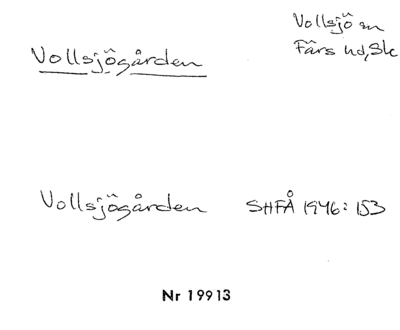 Vollsjö sn
Färs hd, Sk
Vollsjögården
Vollsjögården SHFÅ 1946: 153
Nr 19913